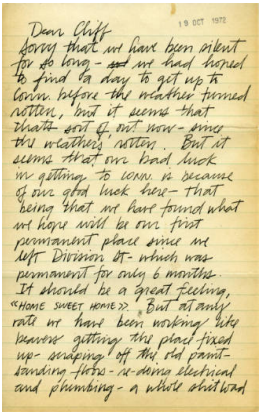 19 OCT 1972
Dear Cliff
Sorry that we have been silent
for so long - we had hoped
to find a day to get up to
Conn. before the weather turned
rotten, but it seems that
thats sort of out now - since
the weathers rotten. But it
seems that our bad luck
in getting to Conn. is because
of our good luck here - that
being that we have found what
we hope will be our first
permanent place since we
left Division St - which was
permanent for only 6 months.
It should be a great feeling,
"HOME SWEET HOME". But at any
rate we have been working like
beavers getting the place fixed
up - scraping off the old paint -
sanding floors - re-doing electrical
and plumbing - a whole shitload